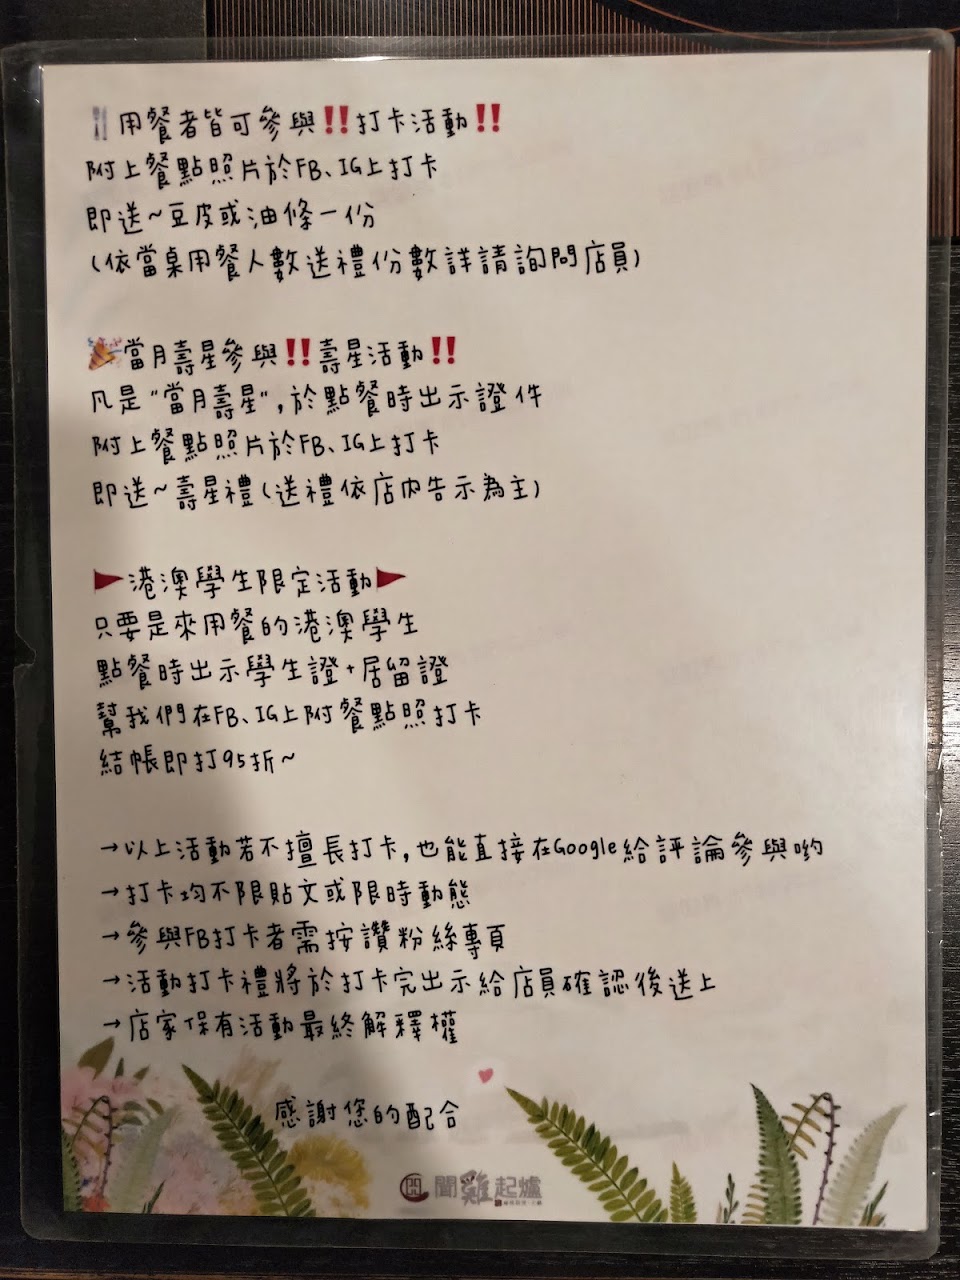 🍴用餐者皆可參與‼️打卡活動‼️
附上餐點照片於FB、IG上打卡
即送~豆皮或油條一份
(依當桌用餐人數送禮份數詳請詢問店員)
🎉當月壽星參與‼️壽星活動‼️
凡是"當月壽星",於點餐時出示證件
附上餐點照片於FB、IG上打卡
即送~壽星禮(送禮依店內告示為主)
🚩港澳學生限定活動🚩
只要是來用餐的港澳學生
點餐時出示學生證+居留證
幫我們在FB、IG上附餐點照打卡
結帳即打95折~
→以上活動若不擅長打卡,也能直接在Google給評論參與喲
→打卡均不限貼文或限時動態
→參與FB打卡者需按讚粉絲專頁
→活動打卡禮將於打卡完出示給店員確認後送上
→店家保有活動最終解釋權
感謝您的配合
聞雞起爐